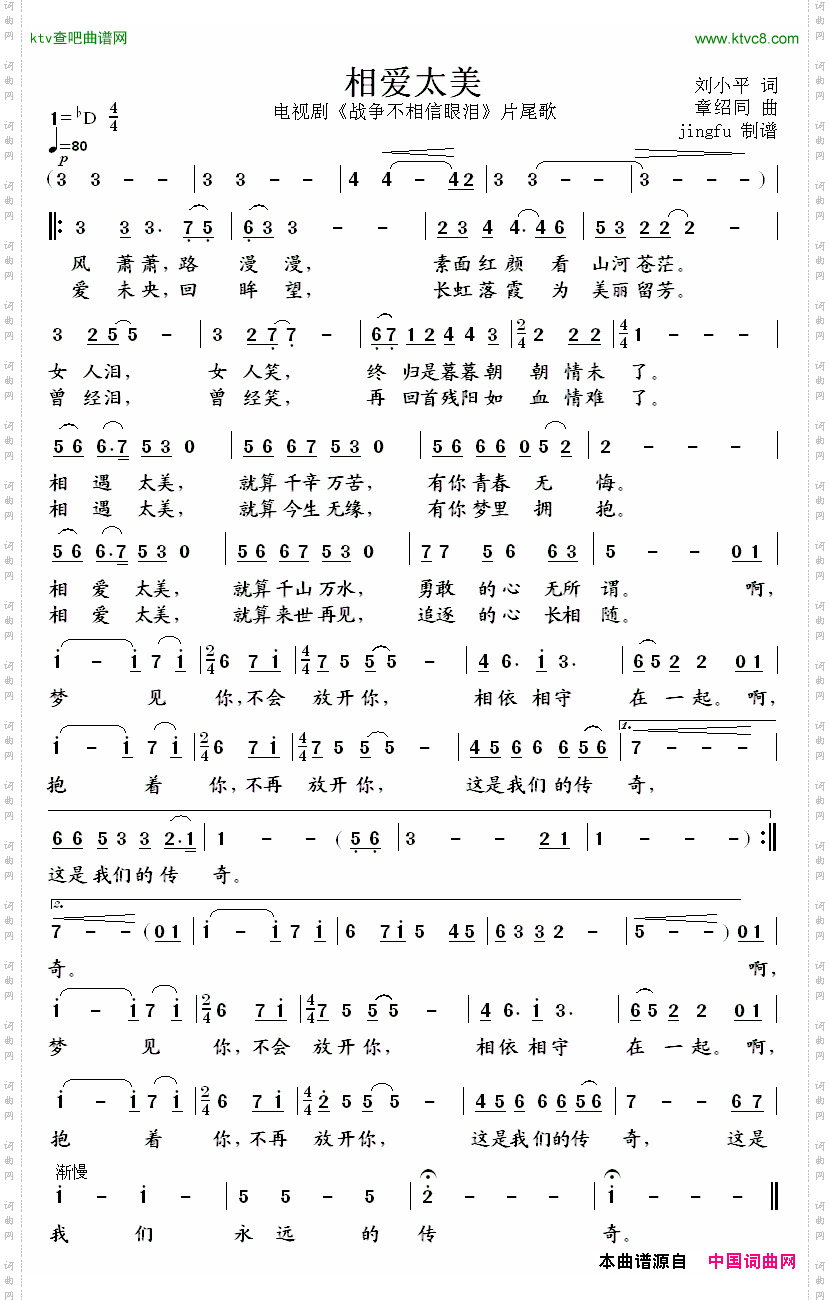 ktv查吧曲谱网 www.ktvc8.com
相爱太美
刘小平 词
电视剧《战争不相信眼泪》片尾歌
章绍同 曲
1=♭D 4/4
jingfu 制谱
♩=80
p
(3 3 - - | 3 3 - - | 4 4 - 42 | 3 3 - - | 3 - - - )
‖: 3 3 3. 7 5 | 6 3 3 - - | 2 3 4 4. 4 6 | 5 3 2 2 2 - |
风 萧萧,路 漫 漫, 素面红颜 看 山河苍茫。
爱 未央,回 眸 望, 长虹落霞 为 美丽留芳。
3 2 5 5 - | 3 2 7 7 - | 6 7 1 2 4 4 3 | 2/4 2 2 2 | 4/4 1 - - - |
女 人泪, 女 人笑, 终 归是暮暮朝 朝 情未 了。
曾 经泪, 曾 经笑, 再 回首残阳如 血 情难 了。
5 6 6. 7 5 3 0 | 5 6 6 7 5 3 0 | 5 6 6 6 0 5 2 | 2 - - - |
相 遇 太美, 就算千辛万苦, 有你青春 无 悔。
相 遇 太美, 就算今生无缘, 有你梦里 拥 抱。
5 6 6. 7 5 3 0 | 5 6 6 7 5 3 0 | 7 7 5 6 6 3 | 5 - - 0 1 |
相 爱 太美, 就算千山万水, 勇敢 的心 无所 谓。 啊,
相 爱 太美, 就算来世再见, 追逐 的心 长相 随。
i - i 7 i | 2/4 6 7 i | 4/4 7 5 5 5 - | 4 6. i 3. | 6 5 2 2 0 1 |
梦 见 你,不会 放开你, 相依 相守 在 一 起。啊,
i - i 7 i | 2/4 6 7 i | 4/4 7 5 5 5 - | 4 5 6 6 6 5 6 | 1. 7 - - - |
抱 着 你,不再 放开你, 这是我们的传 奇,
6 6 5 3 3 2. 1 | 1 - - ( 5 6 | 3 - - 2 1 | 1 - - - ) :‖
这是我们的传 奇。
2. 7 - - ( 0 1 | i - i 7 i | 6 7 i 5 4 5 | 6 3 3 2 - | 5 - - ) 0 1 |
奇。 啊,
i - i 7 i | 2/4 6 7 i | 4/4 7 5 5 5 - | 4 6. i 3. | 6 5 2 2 0 1 |
梦 见 你,不会 放开你, 相依 相守 在 一 起。啊,
i - i 7 i | 2/4 6 7 i | 4/4 2 5 5 5 - | 4 5 6 6 6 5 6 | 7 - - 6 7 |
抱 着 你,不再 放开你, 这是我们的传 奇, 这是
渐慢
i - i - | 5 5 - 5 | 2 - - - | i - - - ‖
我 们 永 远 的 传 奇。
本曲谱源自 中国词曲网
词曲网